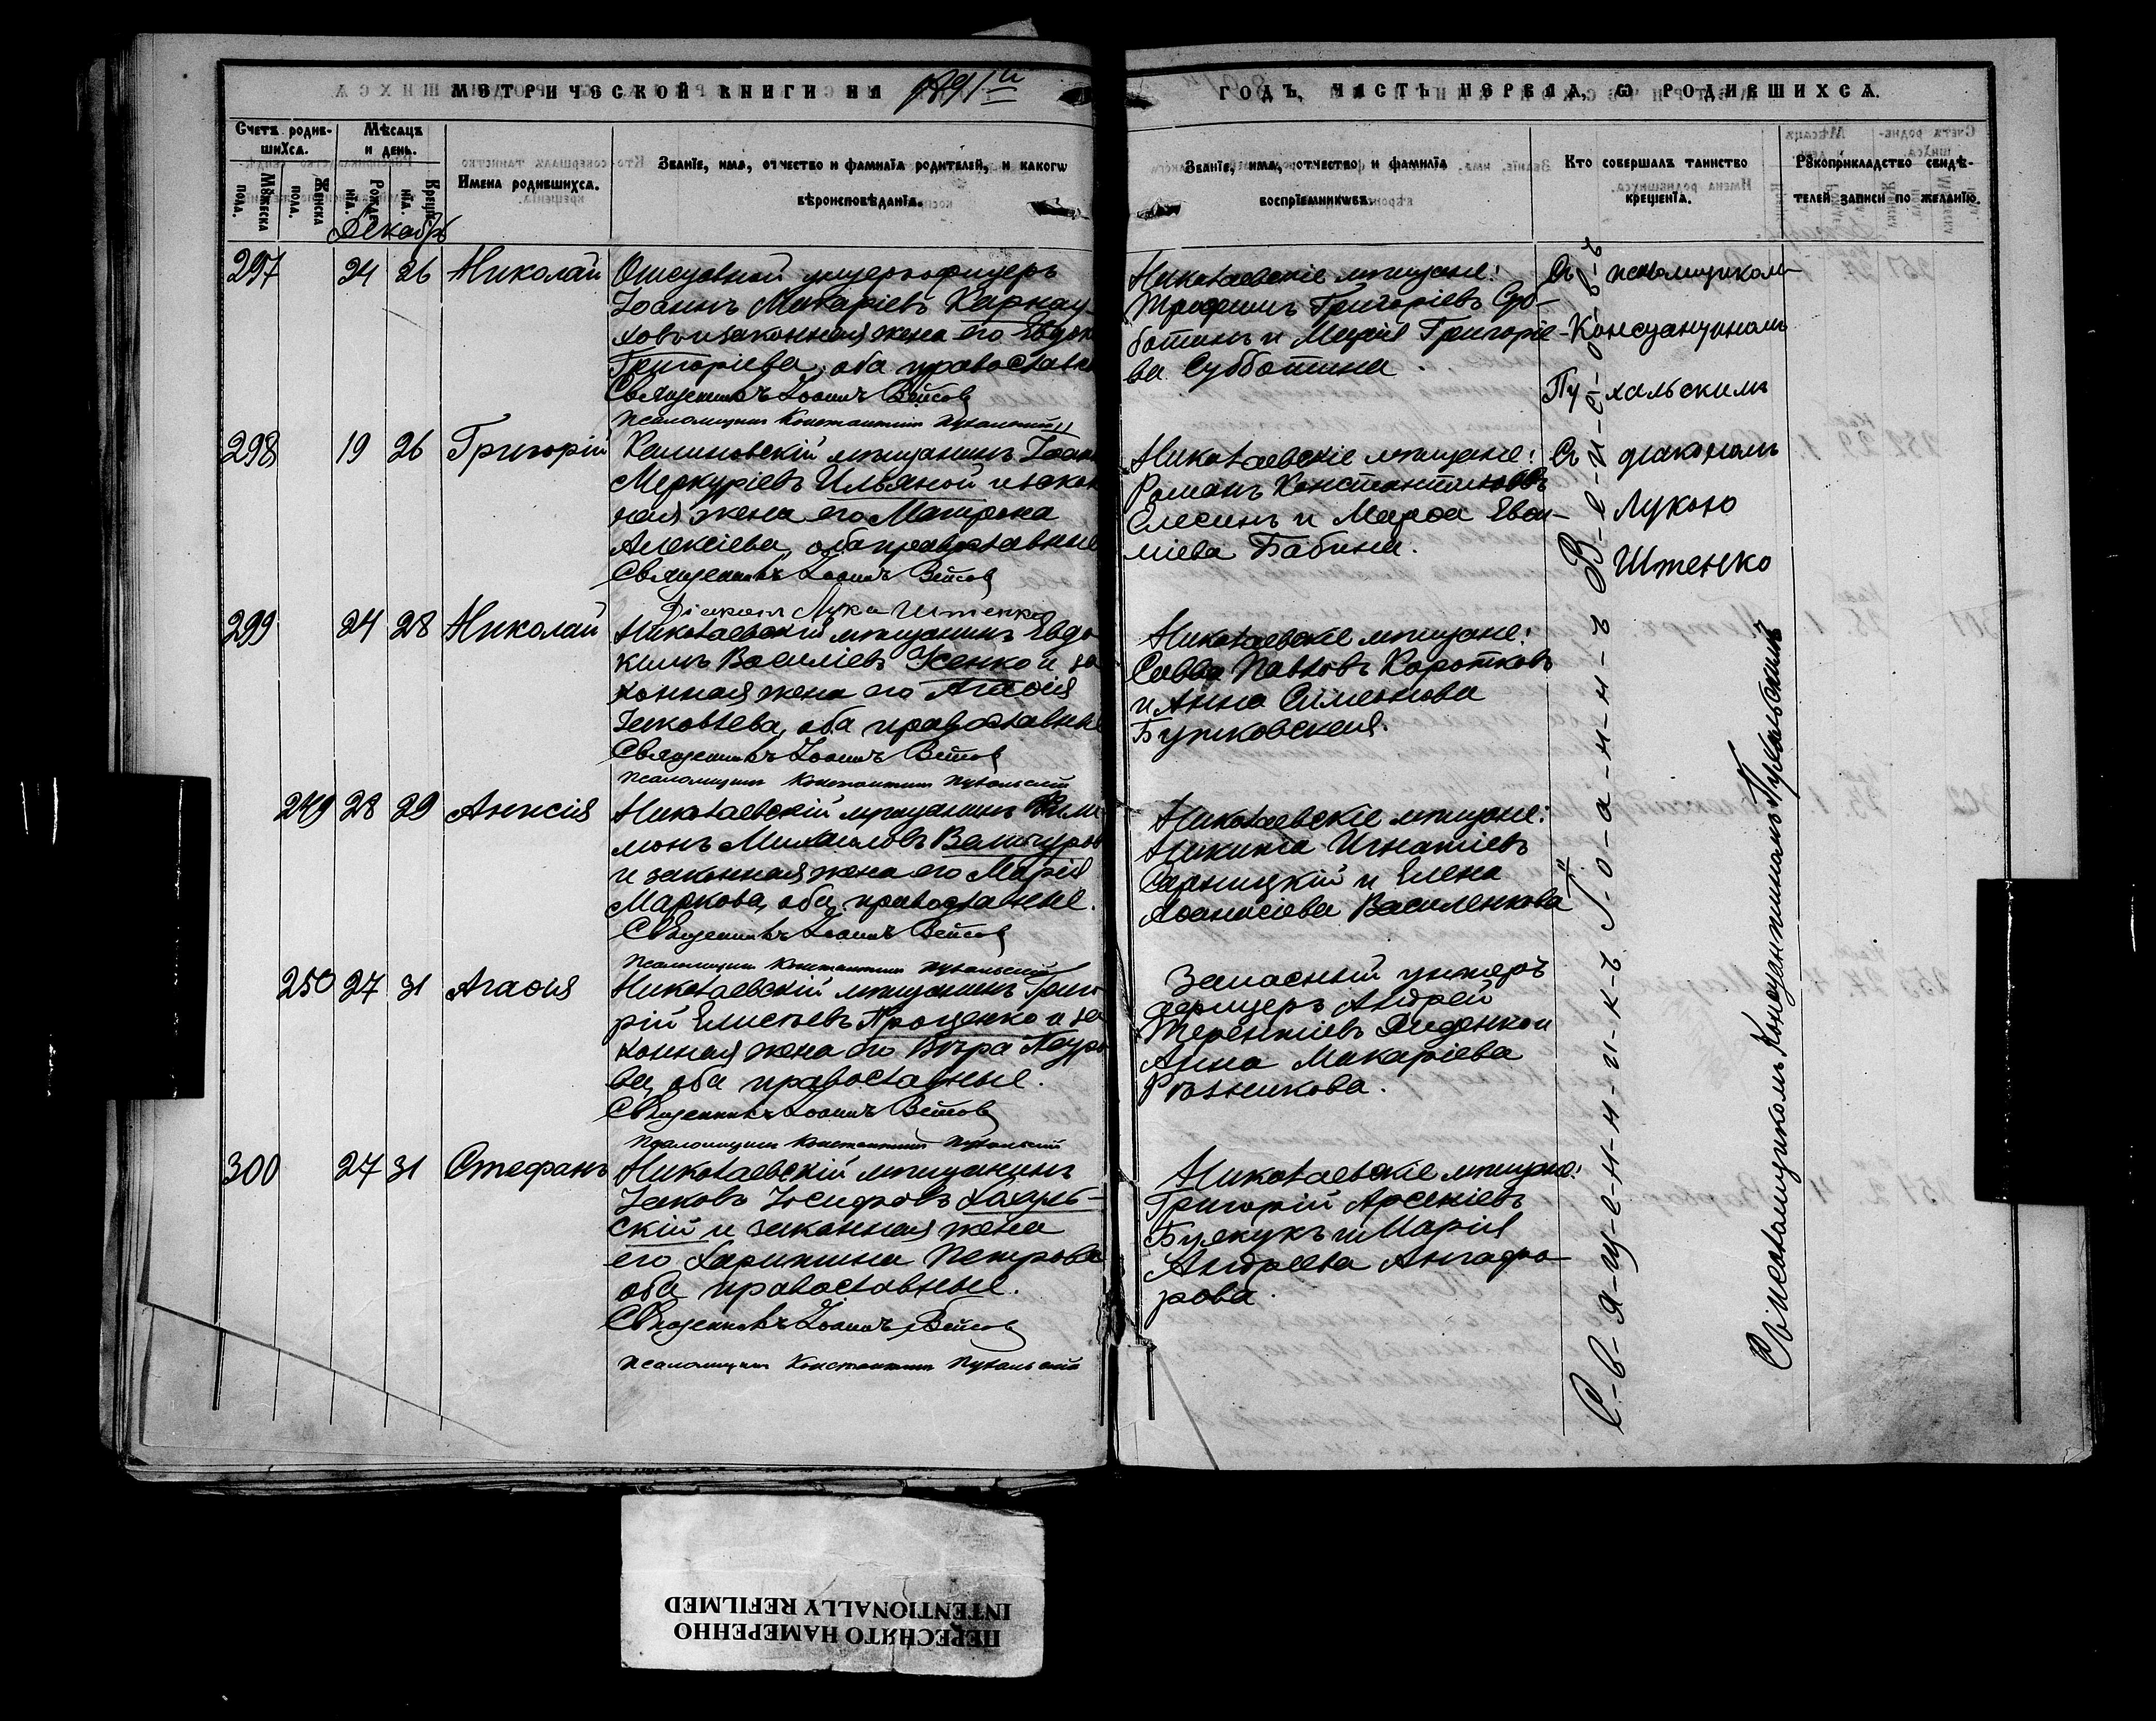 МЕТРИЧЕСКОЙ КНИГИ НА 1891й
ГОДЪ, ЧАСТЬ ПЕРВАЯ, Ѡ РОДИВШИХСѦ.
Счетъ родив-
шихсѧ.
Мѣсѧцъ
и день.
Имена родившихсѧ.
Званїе, имѧ, отчество и фамилїѧ родителей, и какогѡ
вѣроисповѣданїѧ.
Мꙋжеска
пола.
Женска
пола.
Рожде-
нїѧ.
Креще-
нїѧ.
Званїе, имѧ, отчество и фамилїѧ
воспрїемникѡвъ.
Кто совершалъ таинство
крещенїѧ.
Рꙋкоприкладство свидѣ-
телей записи по желанїю.
Декабрь
297 24 26 Николай
Отставной унтерофицеръ
Іоаннъ Макаріевъ Карнау-
ховъ и законная жена его
Григоріева, оба православн
Священникъ Іоаннъ
Псаломщикъ Константинъ Пухальскій
Николаевскіе мѣщане:
Трофимъ Григоріевъ Суб-
ботинъ и Марія Григоріе-
ва Субботина.
Съ псаломщикомъ
Константиномъ
Пухальскимъ
298 19 26 Григорій
мѣщанинъ Іоан
Меркуріевъ Ильяной и закон
ная жена его Матрона
Алексіева, оба православные
Священникъ Іоаннъ
Діаконъ Лука Штенко
Николаевскіе мѣщане:
Романъ Константиновъ
Елесинъ и Марѳа Евѳи-
міева Бабина.
Съ діакономъ
Лукою
Штенко
299 24 28 Николай
Николаевскій мѣщанинъ Евдо
кимъ Василіевъ Усенко и за
конная жена его Агаѳія
Іаковлева, оба православные
Священникъ Іоаннъ
Псаломщикъ Константинъ Пухальскій
Николаевскіе мѣщане:
Савва Павловъ Коротковъ
и Анна Симеонова
249 28 29 Анисія
Николаевскій мѣщанинъ Фили
монъ Михаиловъ
и законная жена его Марія
Маркова, оба православные.
Священникъ Іоаннъ
Псаломщикъ Константинъ Пухальскій
Николаевскіе мѣщане:
Никита Игнатіевъ
Сарницкій и Елена
Аѳанасіева Василенкова
250 27 31 Агаѳія
Николаевскій мѣщанинъ Григо
рій Елисѣевъ Проценко и за
конная жена его Вѣра
ва, оба православные.
Священникъ Іоаннъ
Псаломщикъ Константинъ Пухальскій
Запасный унтеръ
офицеръ Андрей
Терентіевъ Диденко и
Анна Макаріева
300 27 31 Стефанъ
Николаевскій мѣщанинъ
Іаковъ Іосифовъ
скій и законная жена
его Харитина Петрова
оба православные.
Священникъ Іоаннъ
Псаломщикъ Константинъ Пухальскій
Николаевскіе мѣщане:
Григорій Арсеніевъ
и Марія
Андреева
рова.
С-в-я-щ-е-н-н-и-к-ъ І-о-а-н-н-ъ
Съ псаломщикомъ Константиномъ Пухальскимъ
ПЕРЕСНЯТО НАМЕРЕННО
INTENTIONALLY REFILMED